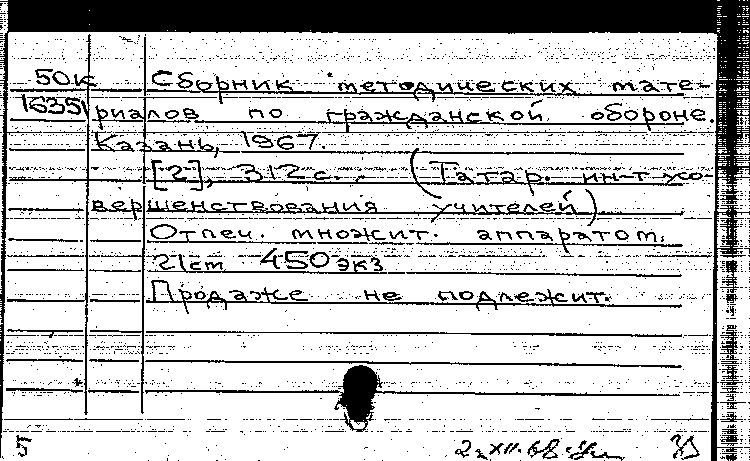 50к Сборник методических мате-
16351 риалов по гражданской обороне.
Казань, 1967.
[2], 312 с. (Татар. ин-т усо-
вершенствования учителей)
Отпеч. множит. аппаратом.
21 см 450 экз
Продаже не подлежит.
5